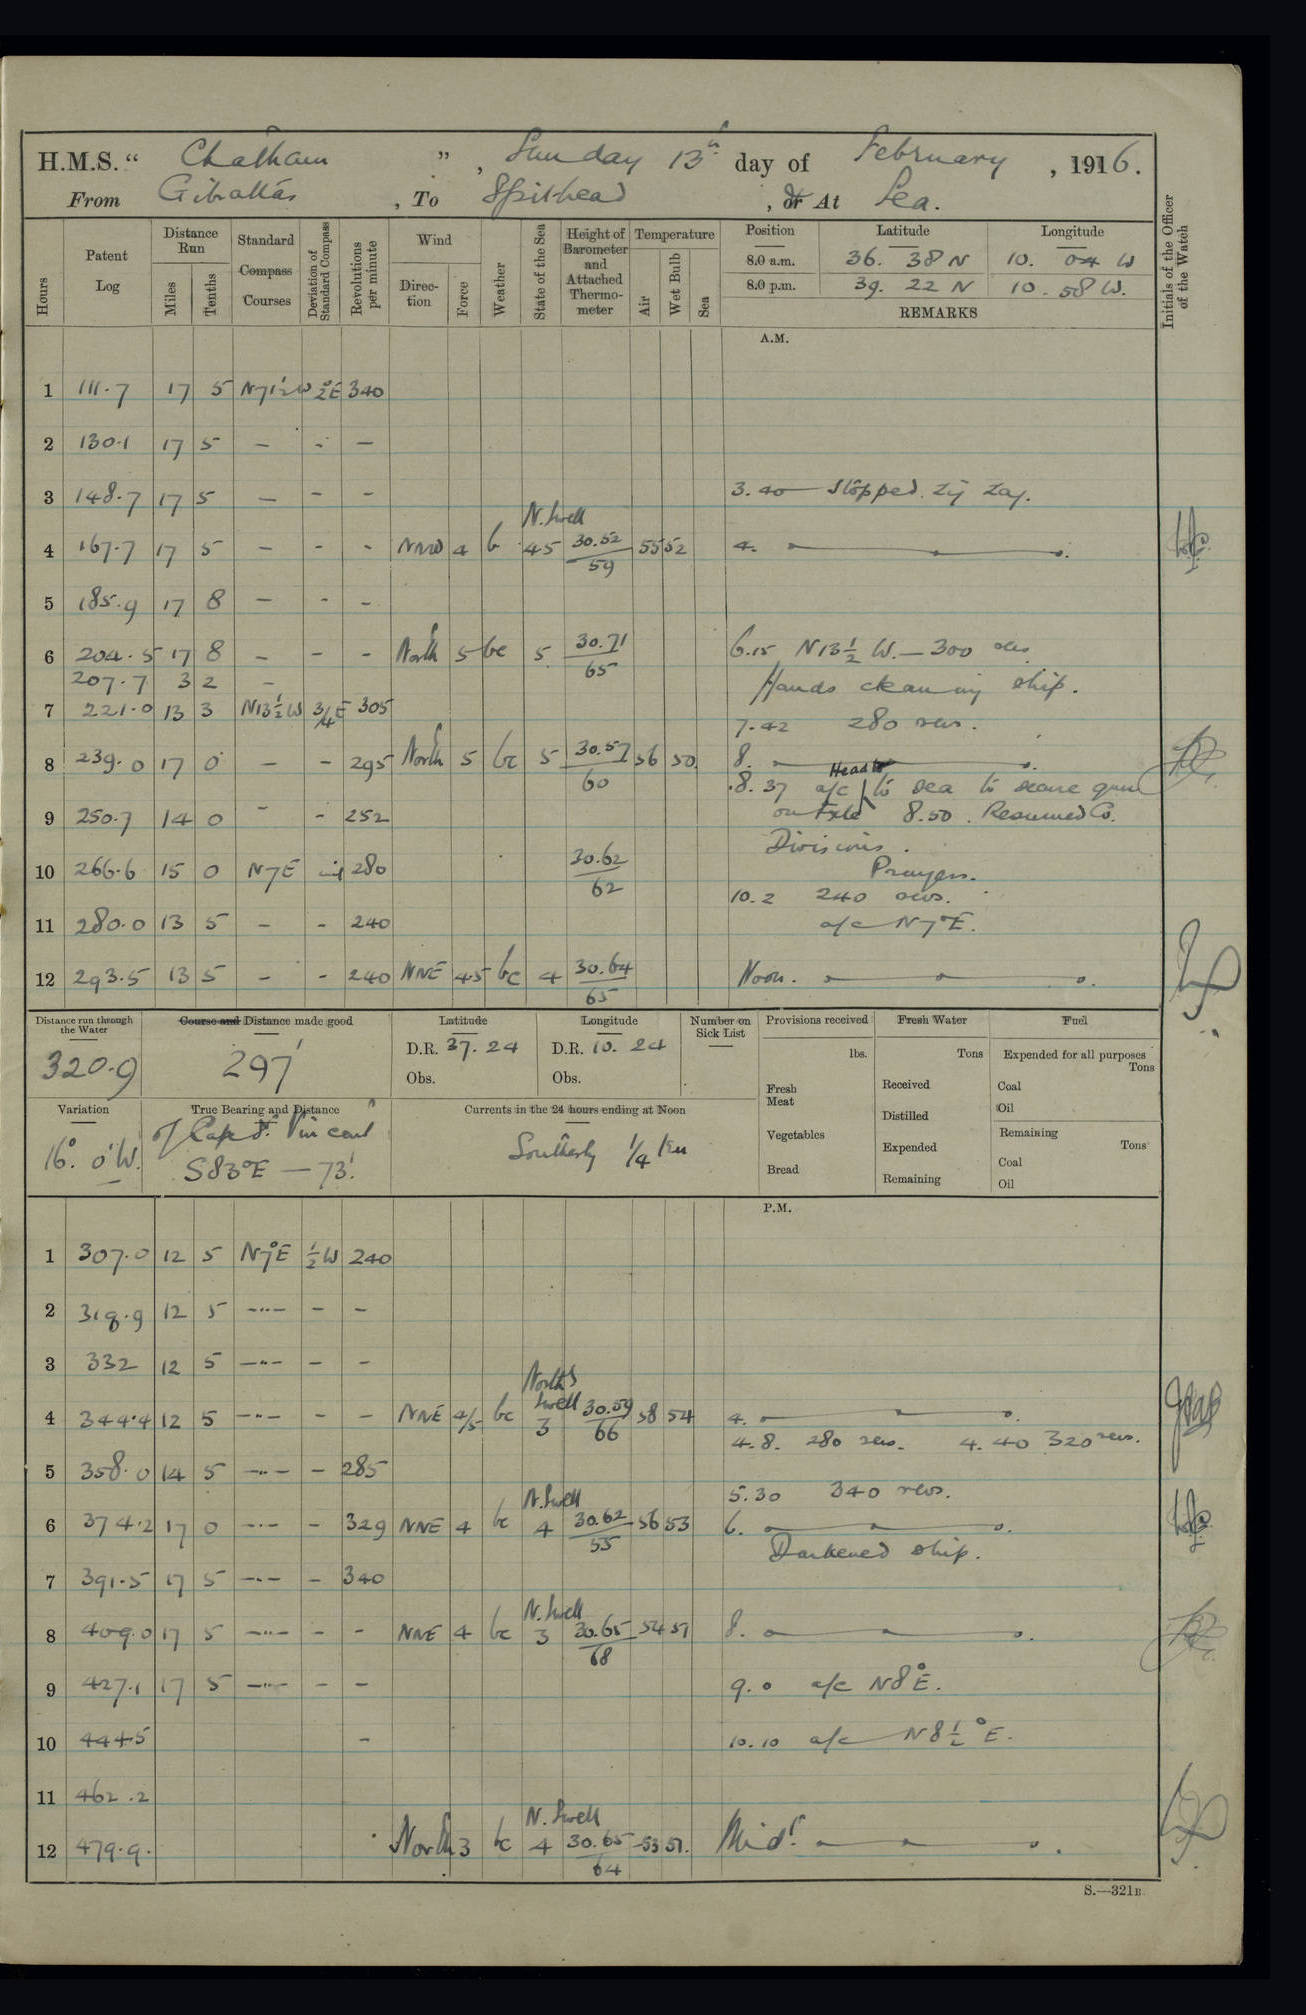 H.M.S. " Chatham ", Sunday 13th day of February, 1916.
From Gibraltar, To Spithead, or At Sea.
Hours
Patent Log
Distance Run
Miles
Tenths
Standard Compass Courses
Deviation of Standard Compass
Revolutions per minute
Wind
Direction
Force
Weather
State of the Sea
Height of Barometer and Attached Thermometer
Temperature
Air
Wet Bulb
Sea
Position Latitude Longitude
8.0 a.m. 36. 38 N 10. 04 W
8.0 p.m. 39. 22 N 10. 58 W.
REMARKS
Initials of the Officer of the Watch
A.M.
1 111.7 17 5 N71½W ½°E 340
2 130.1 17 5 — - —
3 148.7 17 5 — - - 3.40 Stopped zig zag.
N. Swell
4 167.7 17 5 — - - NNW 4 b 45 30.52/59 55 52 4.
5 185.9 17 8 — - -
6 204.5 17 8 - - - North 5 bc 5 30.71/65 6.15 N13½ W. — 300 revs
207.7 3 2 - Hands cleaning ship.
7 221.0 13 3 N13½W ¾E 305
7.42 280 revs.
8 239.0 17 0 - - 295 North 5 bc 5 30.57/60 56 50 8.
8.37 a/c Head to sea to secure gun
9 250.7 14 0 - - 252 on Fxle 8.50. Resumed Co.
Divisions.
10 266.6 15 0 N7E nil 280 30.62/62 Prayers.
10.2 240 revs.
11 280.0 13 5 - - 240 a/c N7°E.
12 293.5 13 5 - - 240 NNE 45 bc 4 30.64/65 Noon.
Distance run through the Water
320.9
Course and Distance made good
297'
Latitude
D.R. 37. 24
Obs.
Longitude
D.R. 10. 24
Obs.
Number on Sick List
Provisions received
lbs.
Fresh Meat
Vegetables
Bread
Fresh Water
Tons
Received
Distilled
Expended
Remaining
Fuel
Expended for all purposes
Tons
Coal
Oil
Remaining
Tons
Coal
Oil
Variation
16°. 0'W.
True Bearing and Distance
of Cape St. Vincent
S83°E — 73'.
Currents in the 24 hours ending at Noon
Southerly ¼ Kn
P.M.
1 307.0 12 5 N7°E ½W 240
2 319.9 12 5 -"- - -
3 332 12 5 -"- - -
North Swell
4 344.4 12 5 -"- - - NNE 4/5 bc 3 30.59/66 58 54 4.
4.8. 280 revs. 4.40 320 revs.
5 358.0 14 5 -"- - 285
5.30 340 revs.
N. Swell
6 374.2 17 0 -"- - 329 NNE 4 bc 4 30.62/55 56 53 6.
Darkened ship.
7 391.5 17 5 -"- - 340
N. Swell
8 409.0 17 5 -"- - - NNE 4 bc 3 30.65/68 54 51 8.
9 427.1 17 5 -"- - - 9.0 a/c N8°E.
10 444.5 - 10.10 a/c N8½°E.
11 462.2
N. Swell
12 479.9. North 3 bc 4 30.65/64 53 51. Midt.
S.—321B.